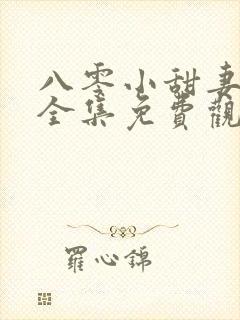 八零小甜妻
全集免費觀
羅心錦